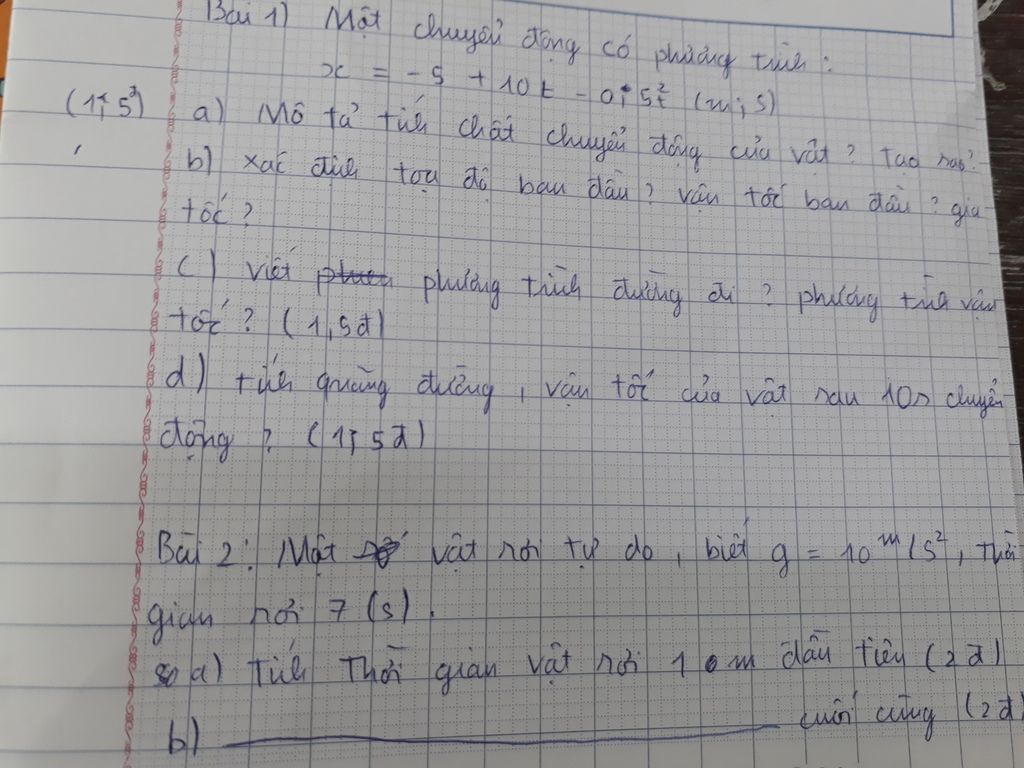 Bài 1) Một chuyển động có phương trình:
x = -5 + 10t - 0,5t² (m; s)
(1,5đ) a) Mô tả tính chất chuyển động của vật? Tại sao?
b) Xác định toạ độ ban đầu? vận tốc ban đầu? gia
tốc?
c) viết phương trình đường đi? phương trình vận
tốc? (1,5đ)
d) tính quãng đường, vận tốc của vật sau 10s chuyển
động? (1,5đ)
Bài 2: Một vật rơi tự do, biết g = 10 m/s², thời
gian rơi 7 (s).
a) Tính thời gian vật rơi 1 m đầu tiên (2đ)
b) ——— cuối cùng (2đ)